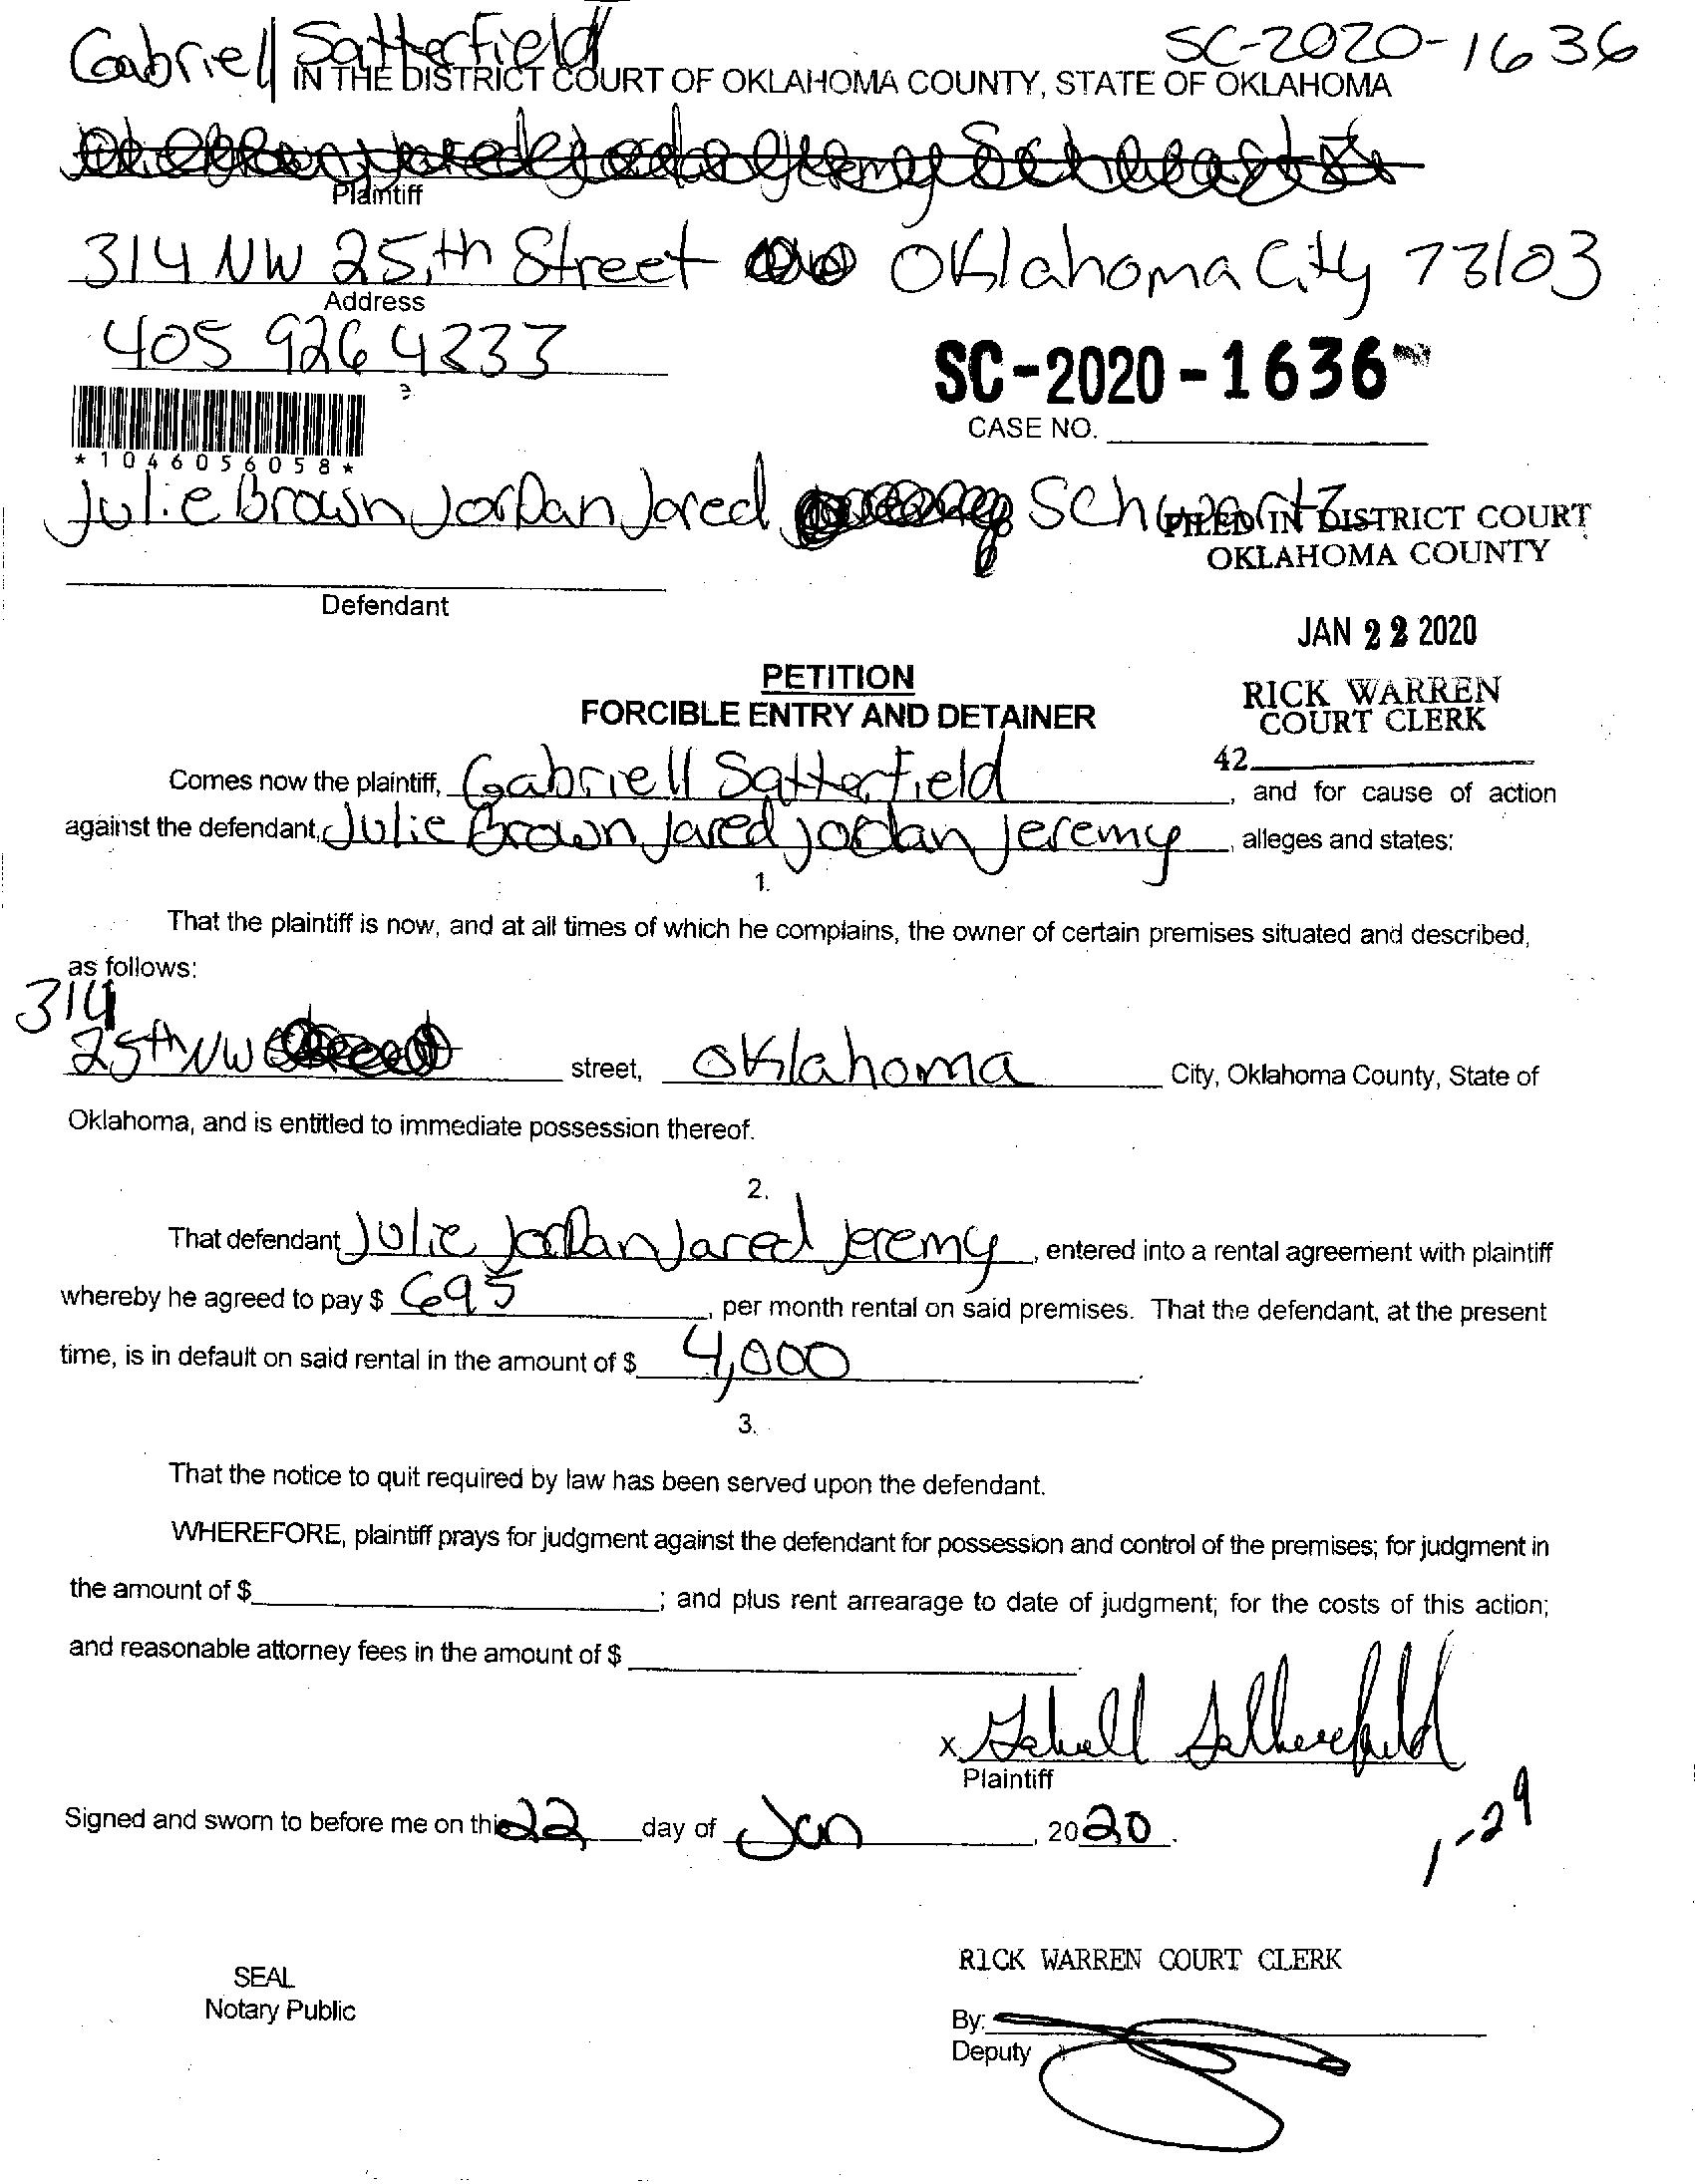 Gabriell Satterfield SC-2020-1636
IN THE DISTRICT COURT OF OKLAHOMA COUNTY, STATE OF OKLAHOMA
Plaintiff
314 NW 25th Street Oklahoma City 73103
Address
405 926 4333
SC-2020-1636
CASE NO.
*1046056058*
Julie Brown Jordan Jared Schwartz
FILED IN DISTRICT COURT
OKLAHOMA COUNTY
Defendant
JAN 22 2020
PETITION
FORCIBLE ENTRY AND DETAINER
RICK WARREN
COURT CLERK
42
Comes now the plaintiff, Gabriell Satterfield, and for cause of action
against the defendant, Julie Brown Jared Jordan Jeremy, alleges and states:
1.
That the plaintiff is now, and at all times of which he complains, the owner of certain premises situated and described,
as follows:
314
25th NW street, Oklahoma City, Oklahoma County, State of
Oklahoma, and is entitled to immediate possession thereof.
2.
That defendant Julie Jordan Jared Jeremy, entered into a rental agreement with plaintiff
whereby he agreed to pay $ 695, per month rental on said premises. That the defendant, at the present
time, is in default on said rental in the amount of $ 4,000.
3.
That the notice to quit required by law has been served upon the defendant.
WHEREFORE, plaintiff prays for judgment against the defendant for possession and control of the premises; for judgment in
the amount of $ ; and plus rent arrearage to date of judgment; for the costs of this action;
and reasonable attorney fees in the amount of $ .
x Gabriell Satterfield
Plaintiff
Signed and sworn to before me on this 22 day of Jan, 2020.
1-29
SEAL
Notary Public
RICK WARREN COURT CLERK
By:
Deputy